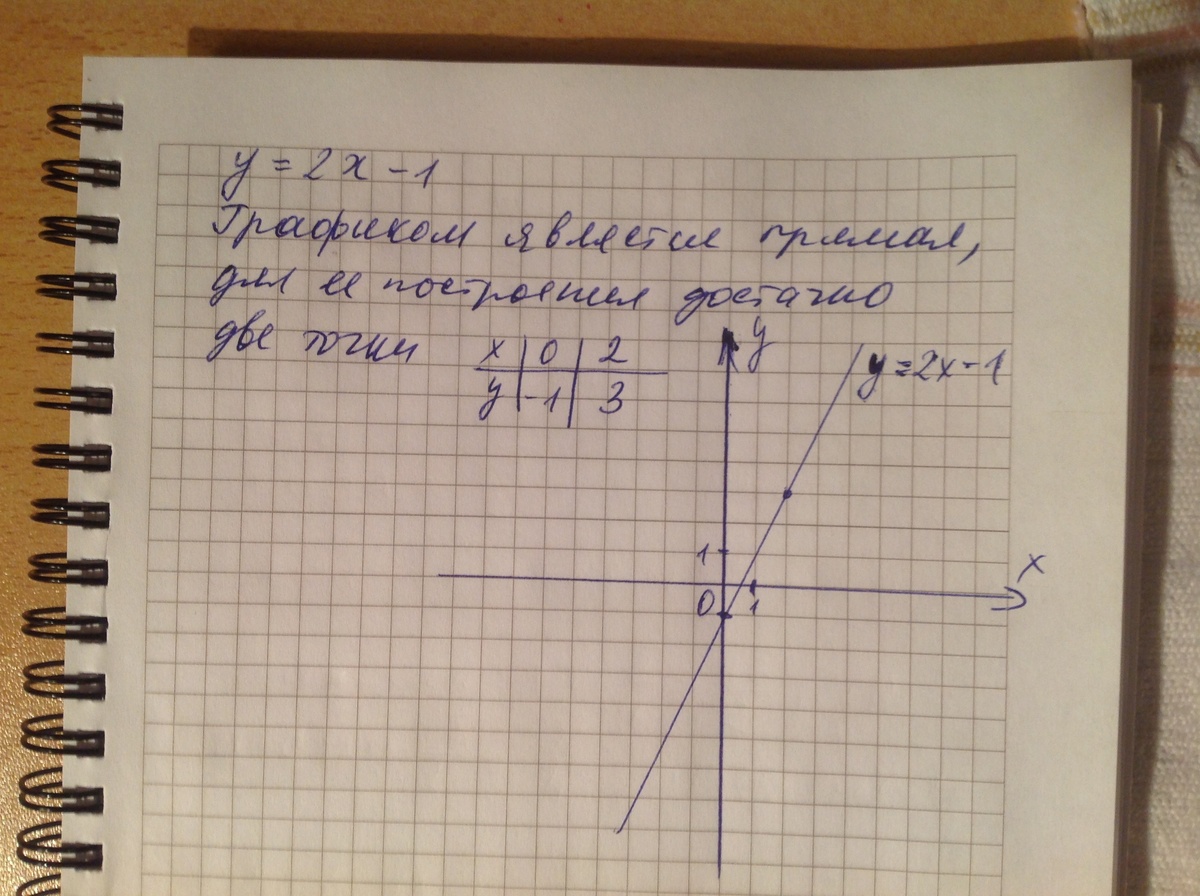 y = 2x - 1
Графиком является прямая,
для ее построения достачно
две точки
x | 0 | 2
y | -1 | 3
y
y = 2x - 1
1
x
0 1